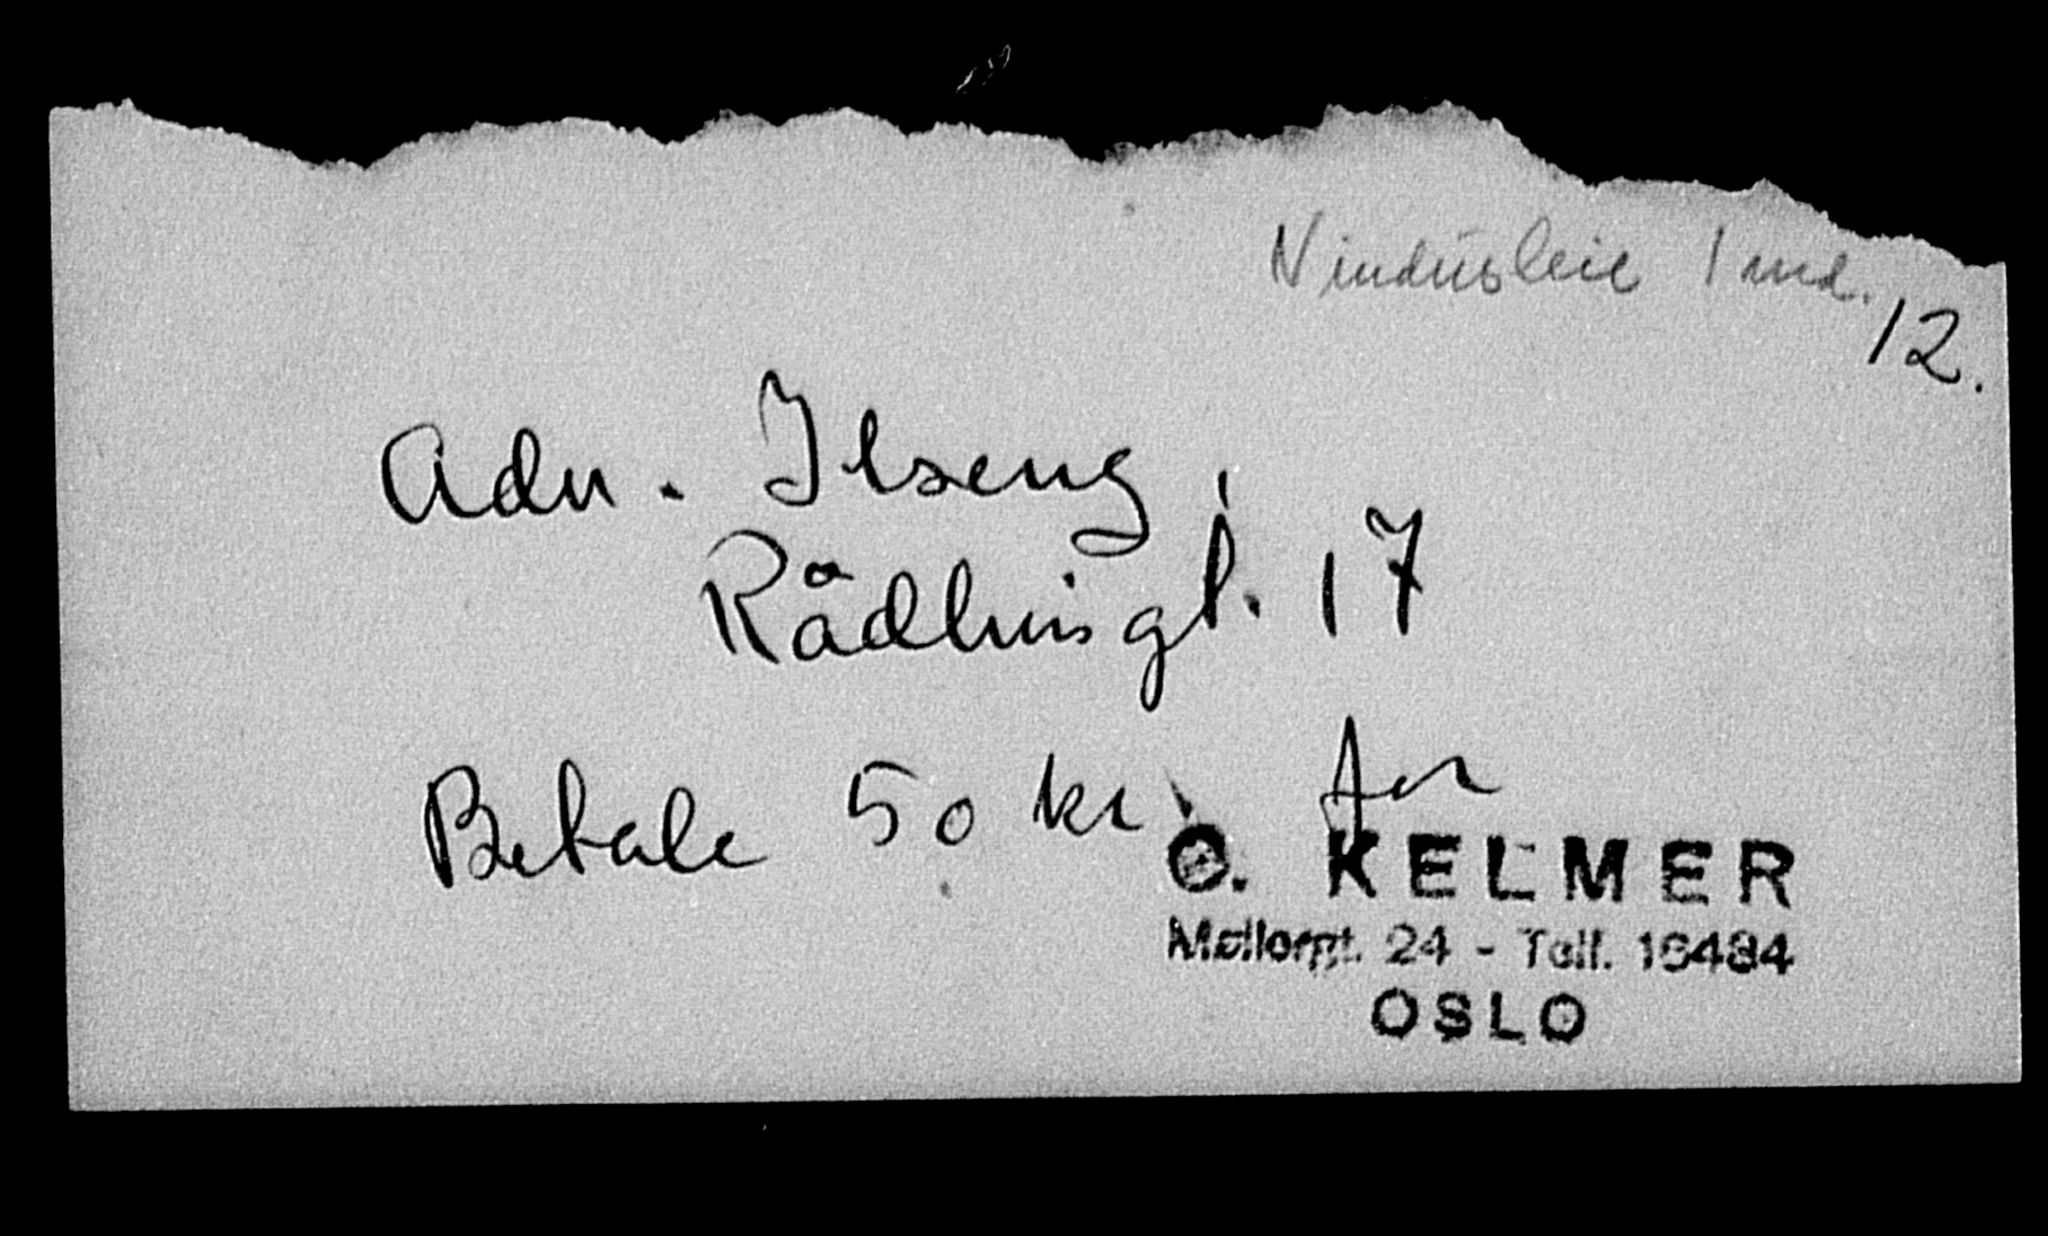 Vindusleie 1 md.
12.
Adv. Ilseng,
Rådhusgt. 17
Betale 50 kr. for
O. KELMER
Møllergt. 24 - Telf. 16484
OSLO